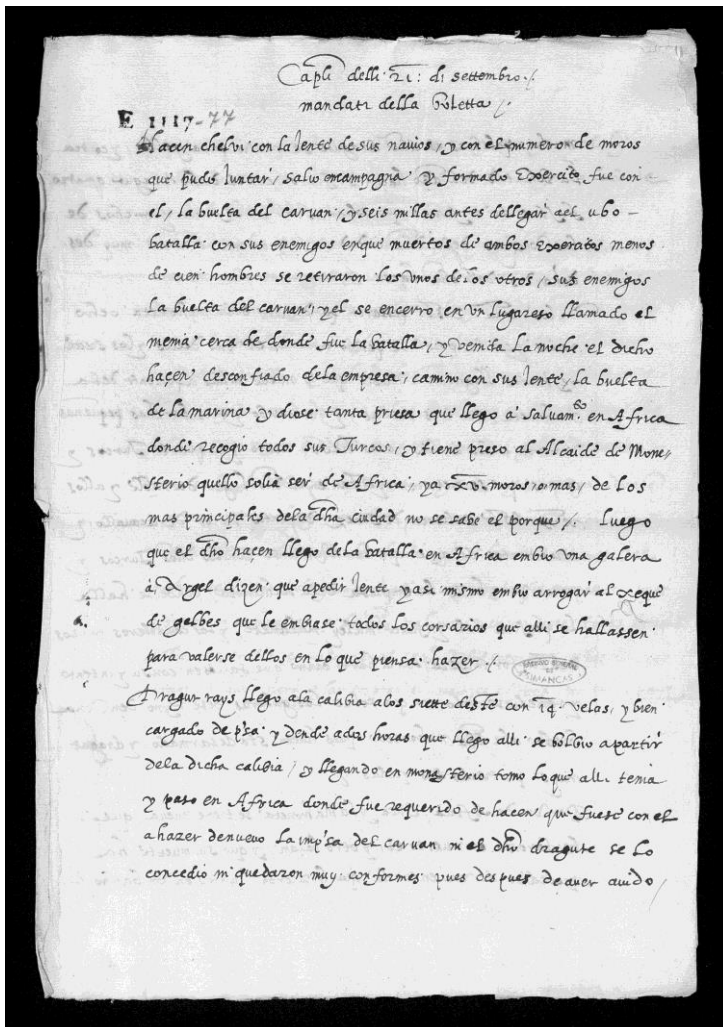 Capli delli 21: di settembro./
mandati della Goletta /.
E 1117-77
Hacen chelvi con la Jente de sus navios, y con el numero de moros
que pudis Juntar, salio encampagna y formado Exercito fue con
el, la buelta del caruan, y seis millas antes dellegar a el ubo-
batalla con sus enemigos enque muertos de ambos exercitos menos
de cien hombres se retiraron los unos delos otros, sus enemigos
la buelta del caruan, y el se encerro en un lugareso llamado el
memia cerca de donde fue la batalla, y venida la noche el dicho
hacen desconfiado dela empresa, camino con sus Jente, la buelta
de la marina y diose tanta priesa que llego a salvamto en Africa
donde recogio todos sus Turcos, y tiene preso al Alcaide de Mone-
sterio quello solia ser de Africa, ya xv. moros o mas, de los
mas principales dela dha ciudad no se sabe el porque /. Luego
que el dho hacen llego dela batalla en Africa embio una galera
a Argel dizen que apedir Jente y asi mismo embio arrogar al xeque
de gelbes que le embiase todos los corsarios que alli se hallassen
para valerse dellos en lo que piensa hazer /.
ARCHIVO GENERAL DE SIMANCAS
Dragut rays llego ala calibia alos siette deste con 14. velas, y bien
cargado de psa y dende ados horas que llego alli se bolbio a partir
dela dicha calibia, y llegando en monasterio tomo lo que alli tenia
y paso en Africa donde fue requerido de hacen que fuese con el
a hazer denuevo la impsa del caruan ni el dho dragute se lo
concedio ni quedaron muy conformes pues despues de aver avido /